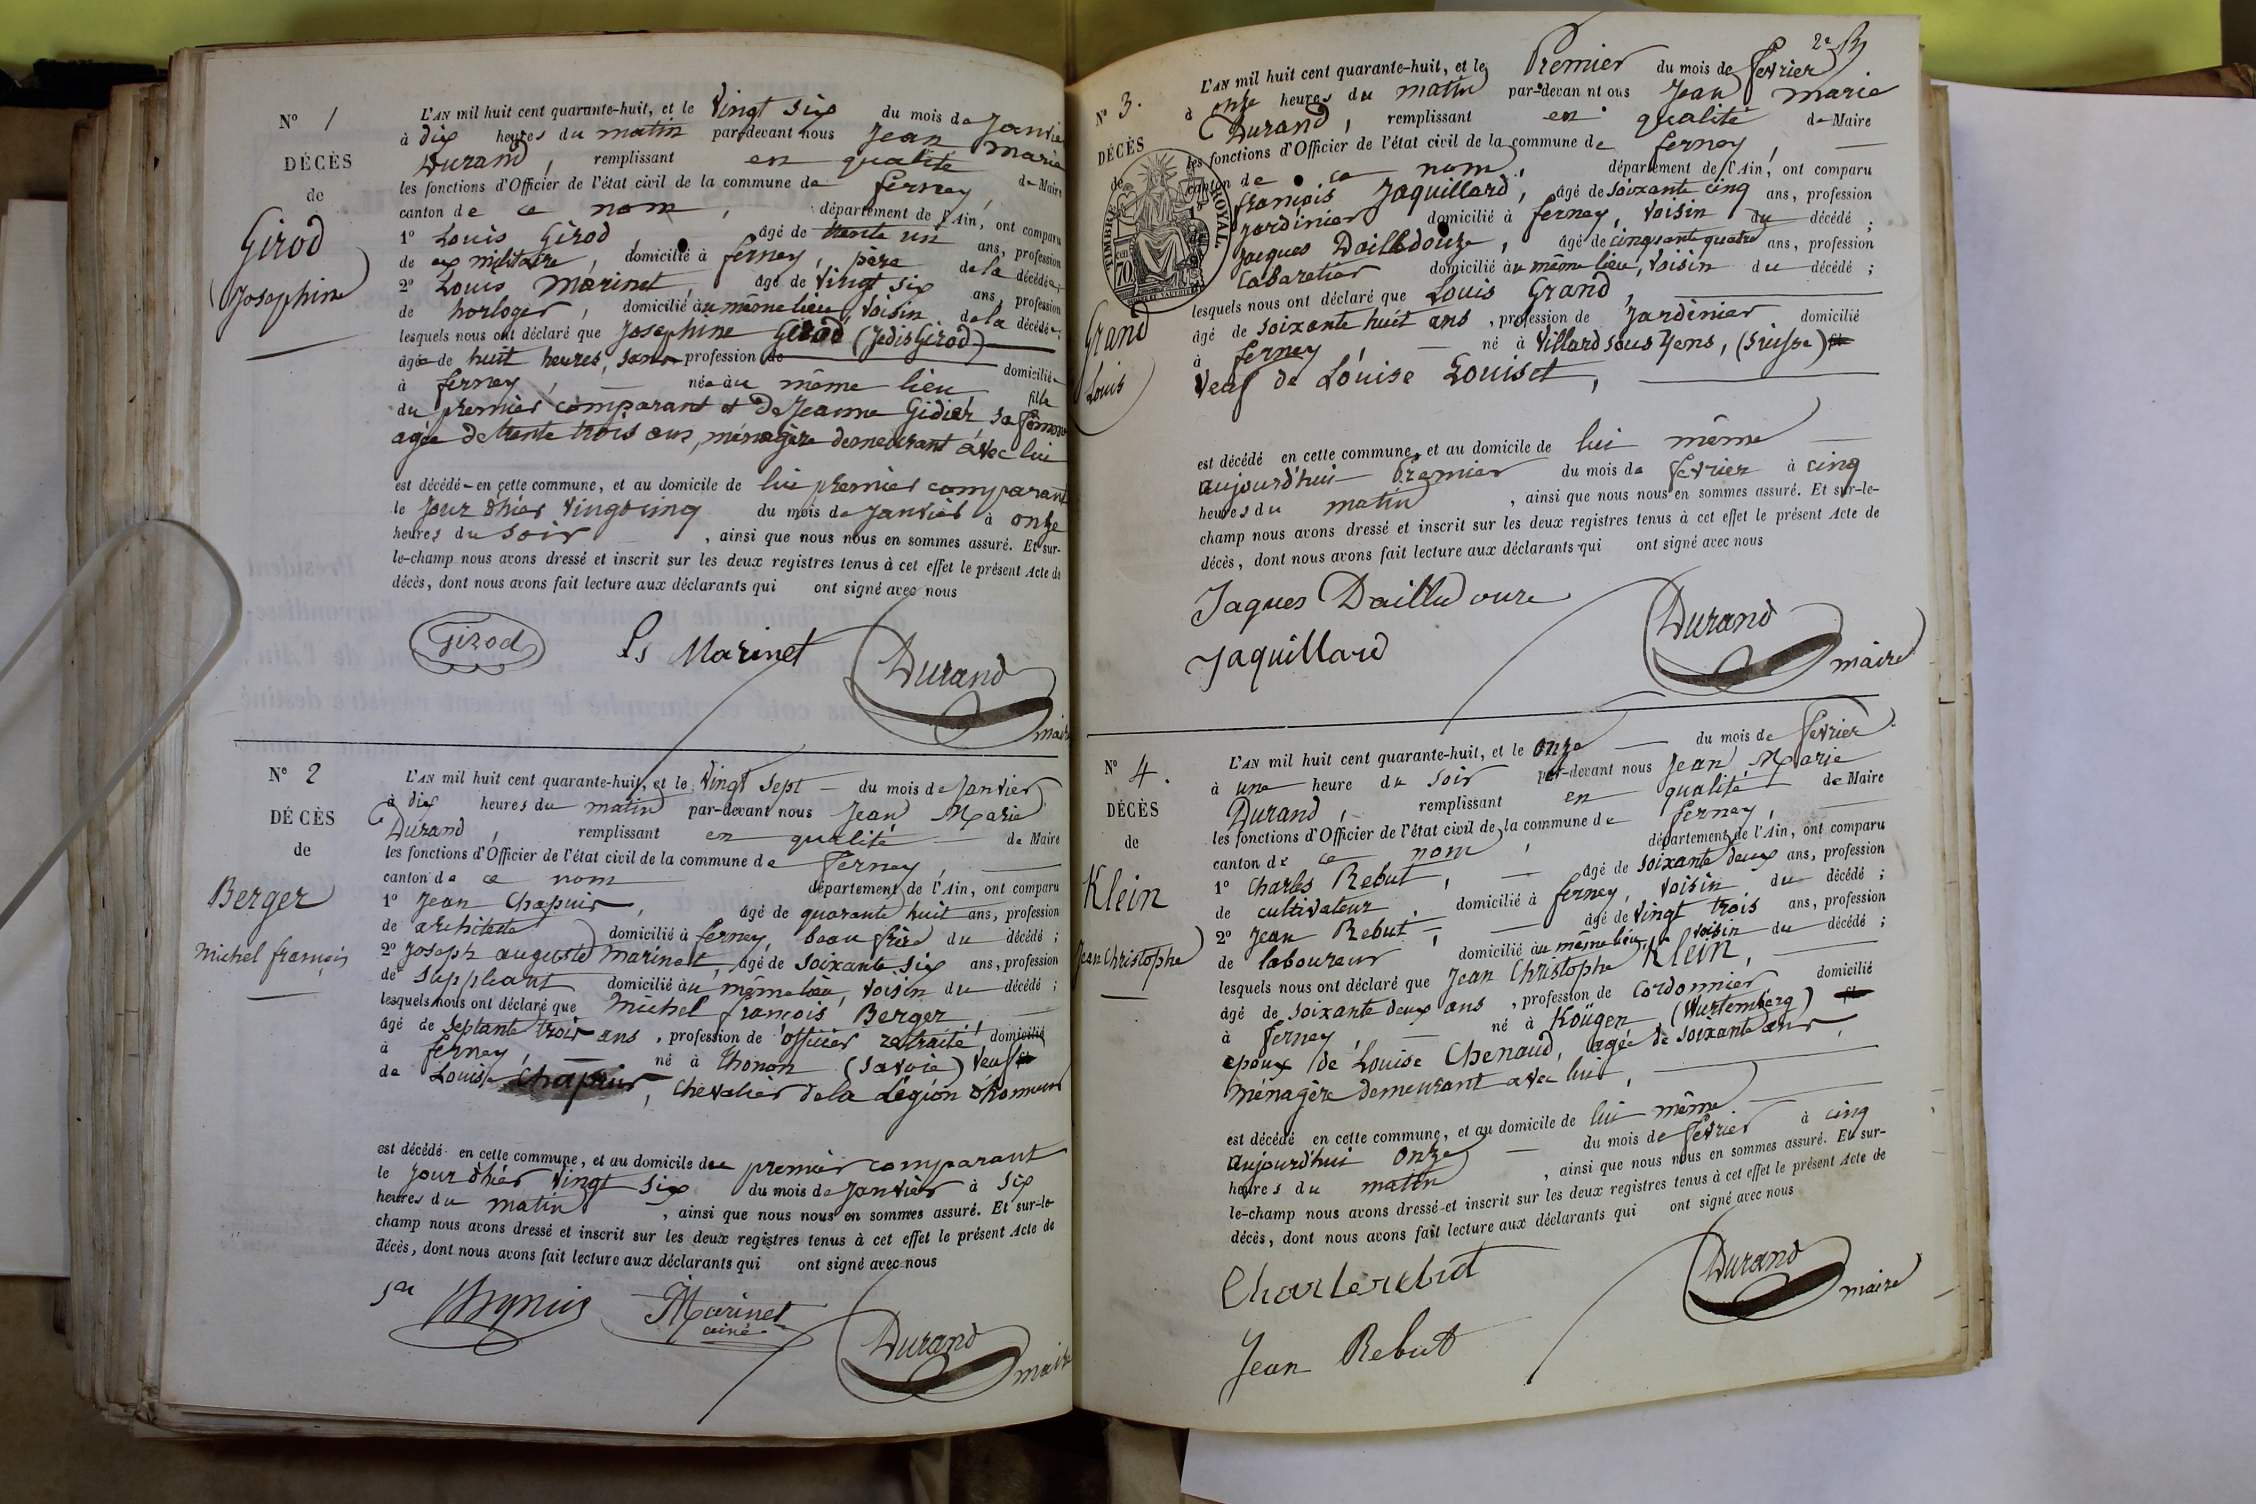 N° 1
DÉCÈS
de
Girod
Josephine
L'AN mil huit cent quarante-huit, et le Vingt six du mois de Janvier
à dix heures du matin par-devant nous Jean Marie
Durand, remplissant en qualité de Maire
les fonctions d'Officier de l'état civil de la commune de ferney,
canton de ce nom, département de l'Ain, ont comparu
1° Louis Girod âgé de trente un ans, profession
de ex militaire, domicilié à ferney, père de la décédée;
2° Louis Marinet, âgé de Vingt six ans, profession
de horloger, domicilié au même lieu, voisin de la décédée;
lesquels nous ont déclaré que Josephine Girod (Jedis Girod)
âgée de huit heures, sans profession de domiciliée
à ferney, née au même lieu fille
du premier comparant et de Jeanne Gidier, sa femme
agée de trente trois ans, ménagère demeurant avec lui
est décédé en cette commune, et au domicile de lui premier comparant
le jour d'hier vingt cinq du mois de Janvier à onze
heures du soir, ainsi que nous nous en sommes assuré. Et sur-
le-champ nous avons dressé et inscrit sur les deux registres tenus à cet effet le présent Acte de
décès, dont nous avons fait lecture aux déclarants qui ont signé avec nous
Girod Ls Marinet Durand
maire
N° 2
DÉCÈS
de
Berger
Michel françois
L'AN mil huit cent quarante-huit, et le Vingt Sept du mois de Janvier
à dix heures du matin par-devant nous Jean Marie
Durand, remplissant en qualité de Maire
les fonctions d'Officier de l'état civil de la commune de Ferney,
canton de ce nom département de l'Ain, ont comparu
1° Jean Chapuis, âgé de quarante huit ans, profession
de architecte domicilié à ferney, beau frère du décédé;
2° Joseph auguste Marinet, âgé de soixante six ans, profession
de Suppleant domicilié au même lieu, voisin du décédé;
lesquels nous ont déclaré que Michel françois Berger,
âgé de Septante trois ans, profession de officier retraité, domicilié
à ferney, né à Thonon (Savoie) veuf
de Louise Chapuis, chevalier de la Légion d'honneur
est décédé en cette commune, et au domicile du premier comparant
le jour d'hier vingt six du mois de Janvier à six
heures du matin, ainsi que nous nous en sommes assuré. Et sur-le-
champ nous avons dressé et inscrit sur les deux registres tenus à cet effet le présent Acte de
décès, dont nous avons fait lecture aux déclarants qui ont signé avec nous
Marinet
ainé
Durand
maire
2e
N° 3.
DÉCÈS
de
TIMBRE ROYAL
70
Grand
Louis
L'AN mil huit cent quarante-huit, et le Premier du mois de fevrier
à onze heures du matin par-devan nt ous Jean Marie
Durand, remplissant en qualité de Maire
les fonctions d'Officier de l'état civil de la commune de ferney,
canton de ce nom, département de l'Ain, ont comparu
françois Jaquillard, âgé de soixante cinq ans, profession
Jardinier domicilié à ferney, voisin du décédé;
Jaques Dailledouze, âgé de cinquante quatre ans, profession
Cabaretier domicilié au même lieu, voisin du décédé;
lesquels nous ont déclaré que Louis Grand,
âgé de soixante huit ans, profession de Jardinier domicilié
à ferney, né à Villard sous Yens, (Suisse)
Veuf de Louise Louiset,
est décédé en cette commune, et au domicile de lui même
aujourd'hui Premier du mois de fevrier à cinq
heures du matin, ainsi que nous nous en sommes assuré. Et sur-le-
champ nous avons dressé et inscrit sur les deux registres tenus à cet effet le présent Acte de
décès, dont nous avons fait lecture aux déclarants qui ont signé avec nous
Jaques Dailledouze
Jaquillard
Durand
maire
N° 4.
DÉCÈS
de
Klein
Jean Christophe
L'AN mil huit cent quarante-huit, et le onze du mois de fevrier
à une heure du soir par-devant nous Jean Marie
Durand, remplissant en qualité de Maire
les fonctions d'Officier de l'état civil de la commune de ferney,
canton de ce nom, département de l'Ain, ont comparu
1° Charles Rebut, âgé de soixante deux ans, profession
de cultivateur, domicilié à ferney, voisin du décédé;
2° Jean Rebut, âgé de vingt trois ans, profession
de laboureur domicilié au même lieu, voisin du décédé;
lesquels nous ont déclaré que Jean Christophe Klein,
âgé de soixante deux ans, profession de Cordonnier domicilié
à ferney, né à Koügen (Wurtemberg)
epoux de Louise Chenaud, agée de soixante ans,
ménagère demeurant avec lui,
est décédé en cette commune, et au domicile de lui même
aujourd'hui onze du mois de fevrier à cinq
heures du matin, ainsi que nous nous en sommes assuré. Et sur-
le-champ nous avons dressé et inscrit sur les deux registres tenus à cet effet le présent Acte de
décès, dont nous avons fait lecture aux déclarants qui ont signé avec nous
Charle rebut
Jean Rebut
Durand
maire